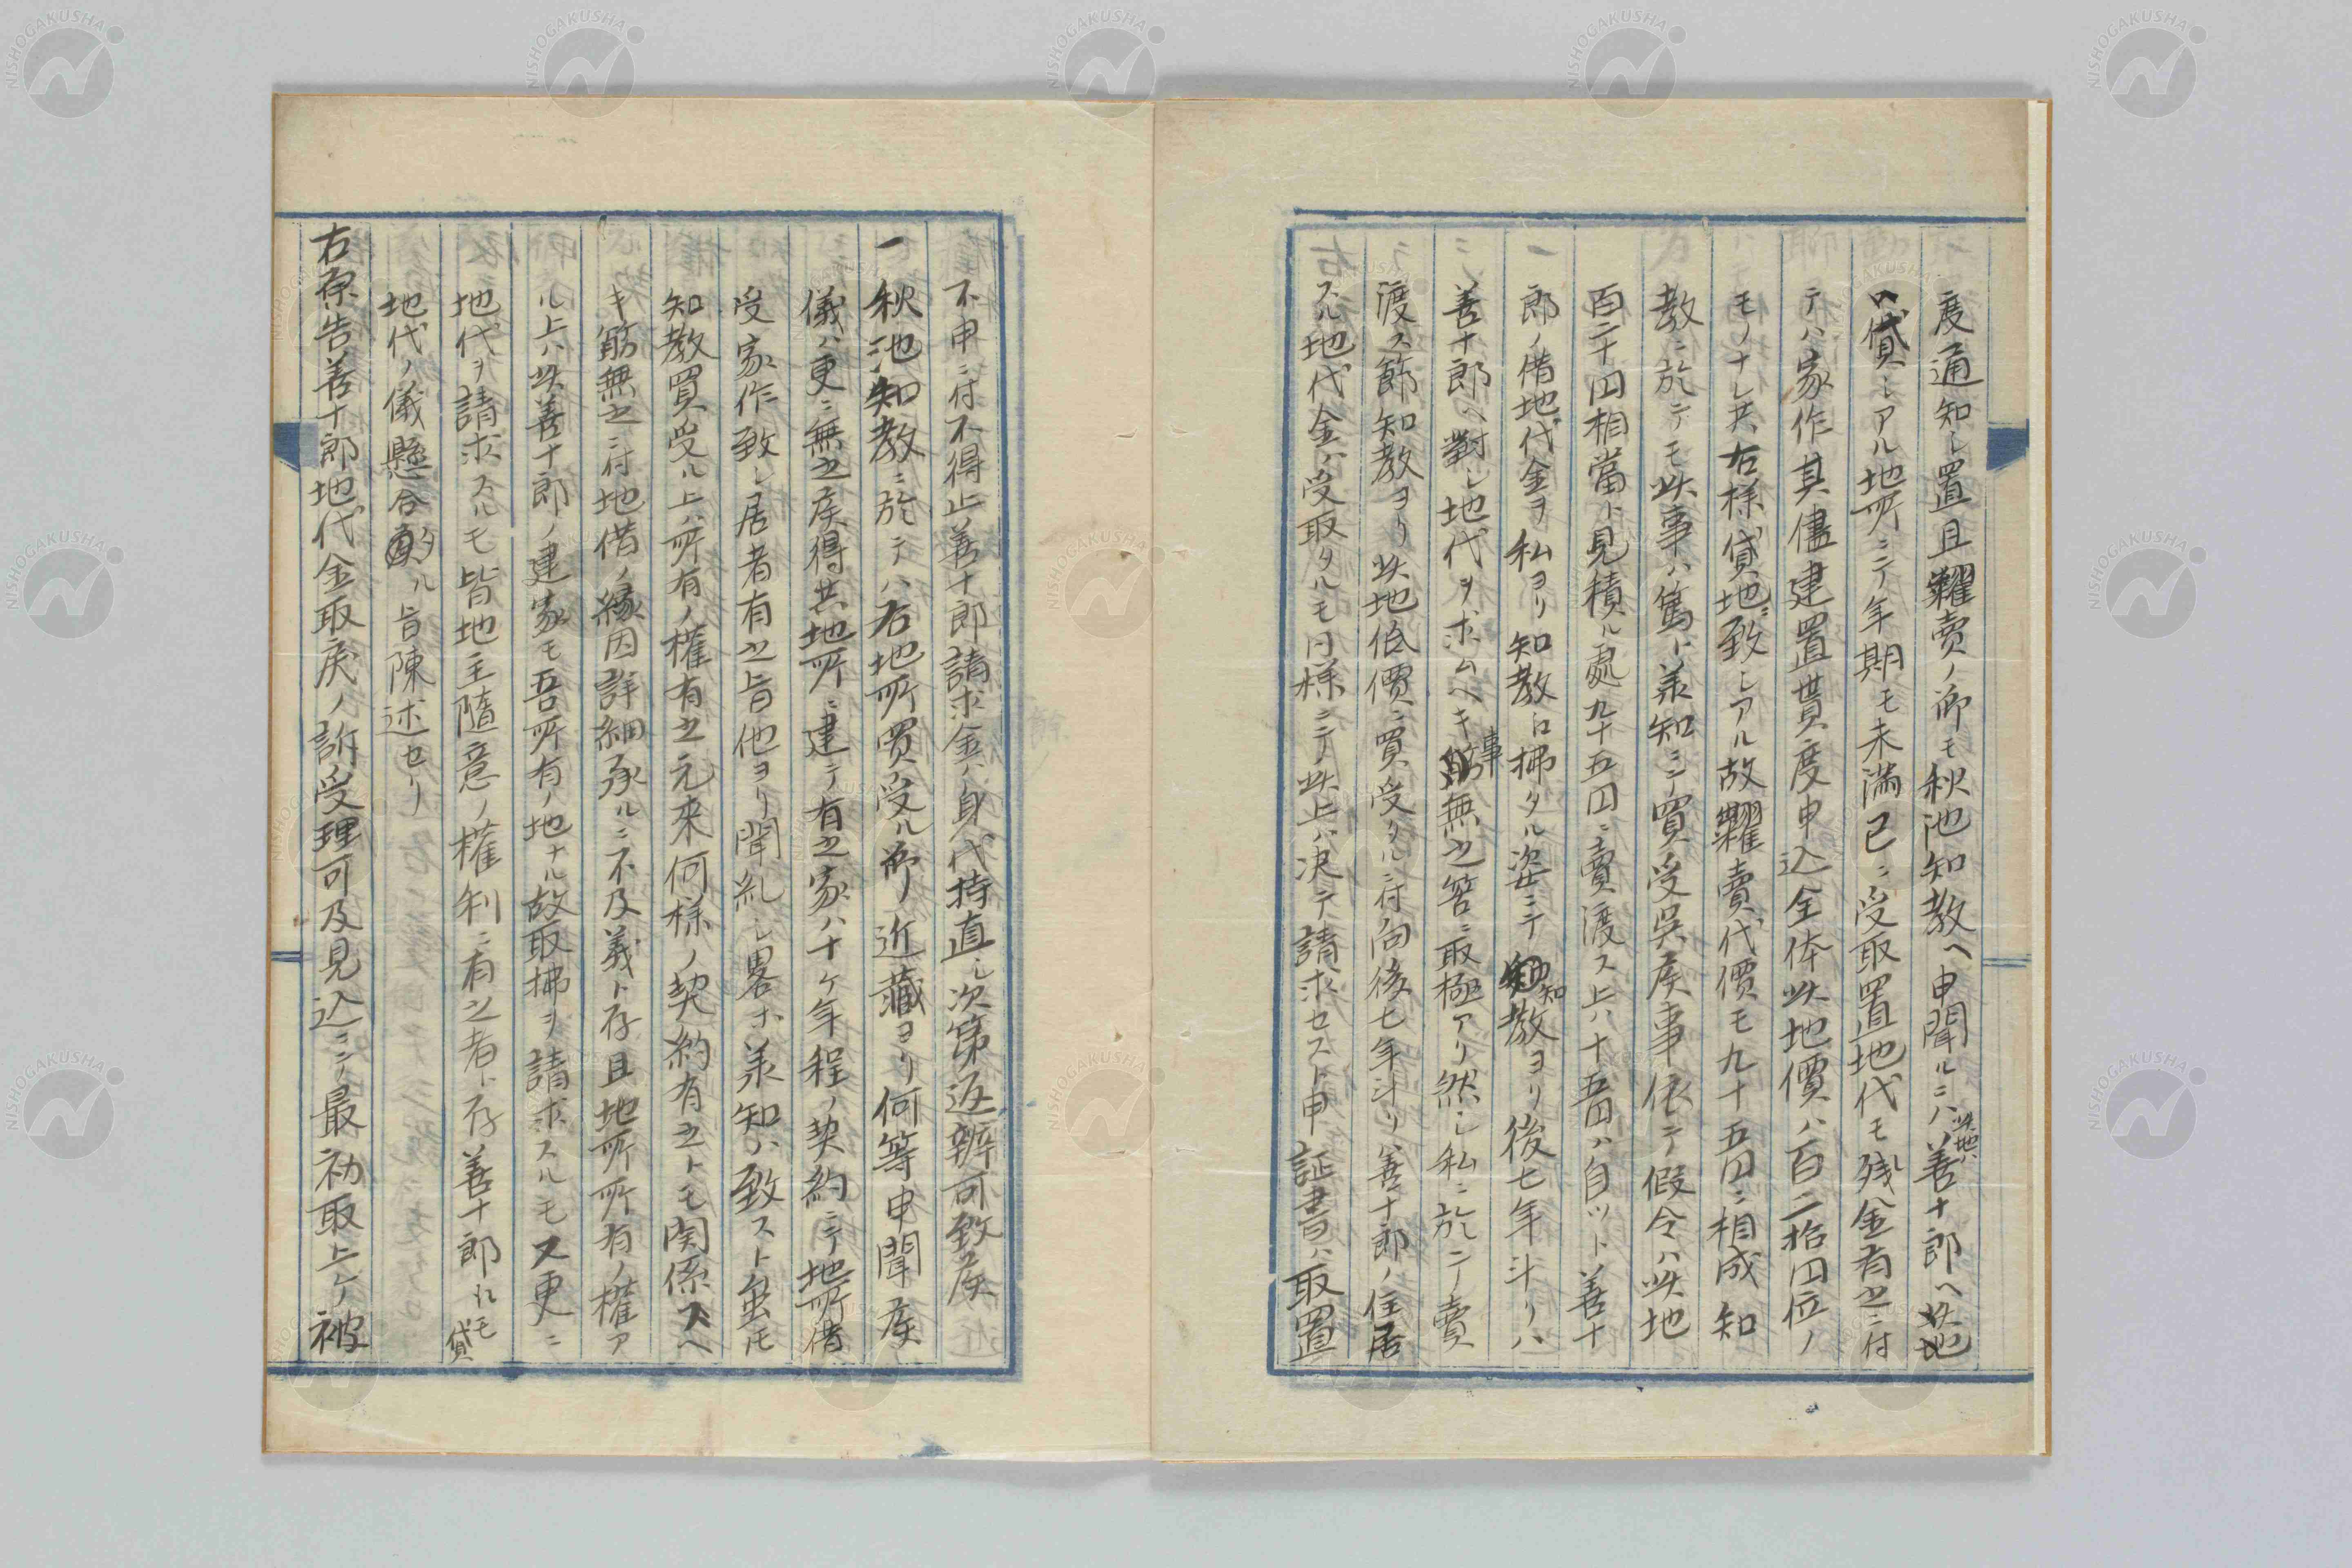 度通知シ置且糶賣ノ節モ秋池知教ヘ申聞ルニハ此地ハ善十郎ヘ此地
ハ貸シアル地所ニテ年期モ未満已ニ受取置地代モ残金有之ニ付
テハ家作其儘建置貰度申込全体此地價ハ百二拾円位ノ
モノナレ共右様貸地ニ致シアル故糶賣代價モ九十五円ニ相成知
教ニ於テモ此事ハ篤ト義知ニシテ買受呉候事ニ依テ假令ハ此地
百二十円相當ト見積ル處九十五円ニ賣渡ス上ハ十五円ハ自ツト善十
郎ノ借地代金ヲ私ヨリ知教ヘ拂タル姿ニテ知教ヨリ後七年斗リハ
善十郎ヘ對シ地代ヲ求ムヘキ事無之筈ニ取極アリ然シ私ニ於テ賣
渡ス節知教ヨリ此地低價ニ買受タルニ付向後七年斗リハ善十郎ノ住居
スル地代金ハ受取タルモ同様ニテ此上ハ決テ請求セスト申証書ハ取置
不申ニ付不得止善十郎請求金ハ身代持直シ次第返辨可致候
一秋池知教ニ於テハ右地所買受ル節ノ近藏ヨリ何等申聞候
儀ハ更ニ無之候得共地所ニ建テ有之家ハ十ケ年程ノ契約ニテ地所借
受家作致シ居者有之旨他ヨリ聞糺シ畧ホ義知ハ致スト虽モ
知教買受ル上ハ所有ノ權有之元来何様ノ契約有之トモ関係スヘ
キ筋無之ニ付地借ノ縁因詳細承ルニ不及義ト存且地所所有ノ權ア
ル上ハ此善十郎ノ建家モ吾所有ノ地ナル故取拂ヲ請求スルモ又更ニ
地代ヲ請求スルモ皆地主隨意ノ權利ニ有之者ト存善十郎ヘモ貸
地代ノ儀懸合タル旨陳述セリ
右原告善十郎地代金取戻ノ訴受理可及見込ニシテ最初取上ケノ被